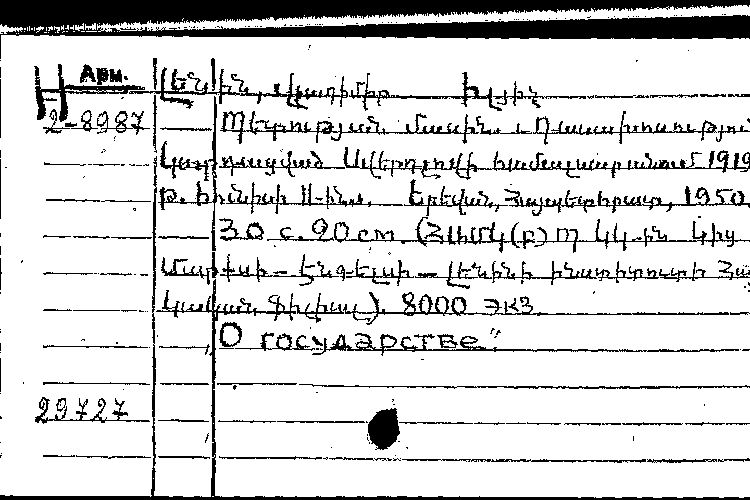 Арм.
Լենին, Վլադիմիր Իլյիչ
2-8987 Պետության մասին. Դասախոսություն
կարդացված Սվերդլովի համալսարանում 1919
թ. հուլիսի 11-ին. Երևան, Հայպետհրատ, 1950.
30 с. 20 см. (ՀամԿ(բ)Պ ԿԿ-ին կից
Մարքսի - Էնգելսի - Լենինի ինստիտուտի Հայ
կական ֆիլիալ). 8000 экз.
"О государстве."
29727